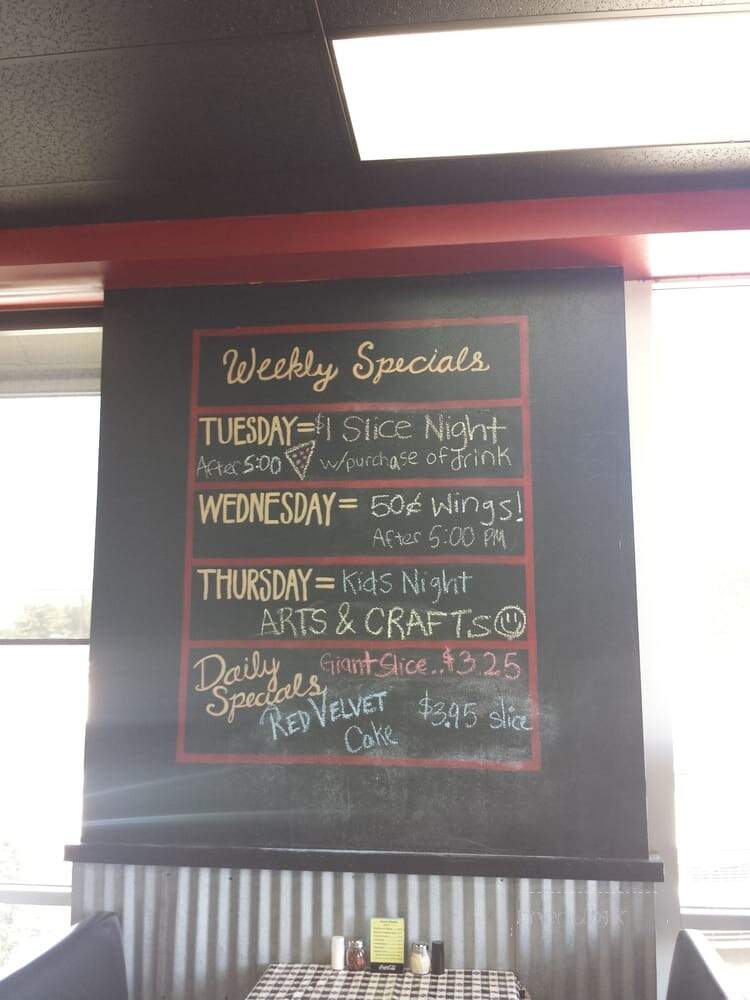 Weekly Specials
TUESDAY = $1 Slice Night
After 5:00 w/purchase of drink
WEDNESDAY = 50¢ Wings!
After 5:00 PM
THURSDAY = Kids Night
ARTS & CRAFTS
Daily Specials
Giant Slice.. $3.25
RED VELVET Cake $3.95 slice
Coca-Cola